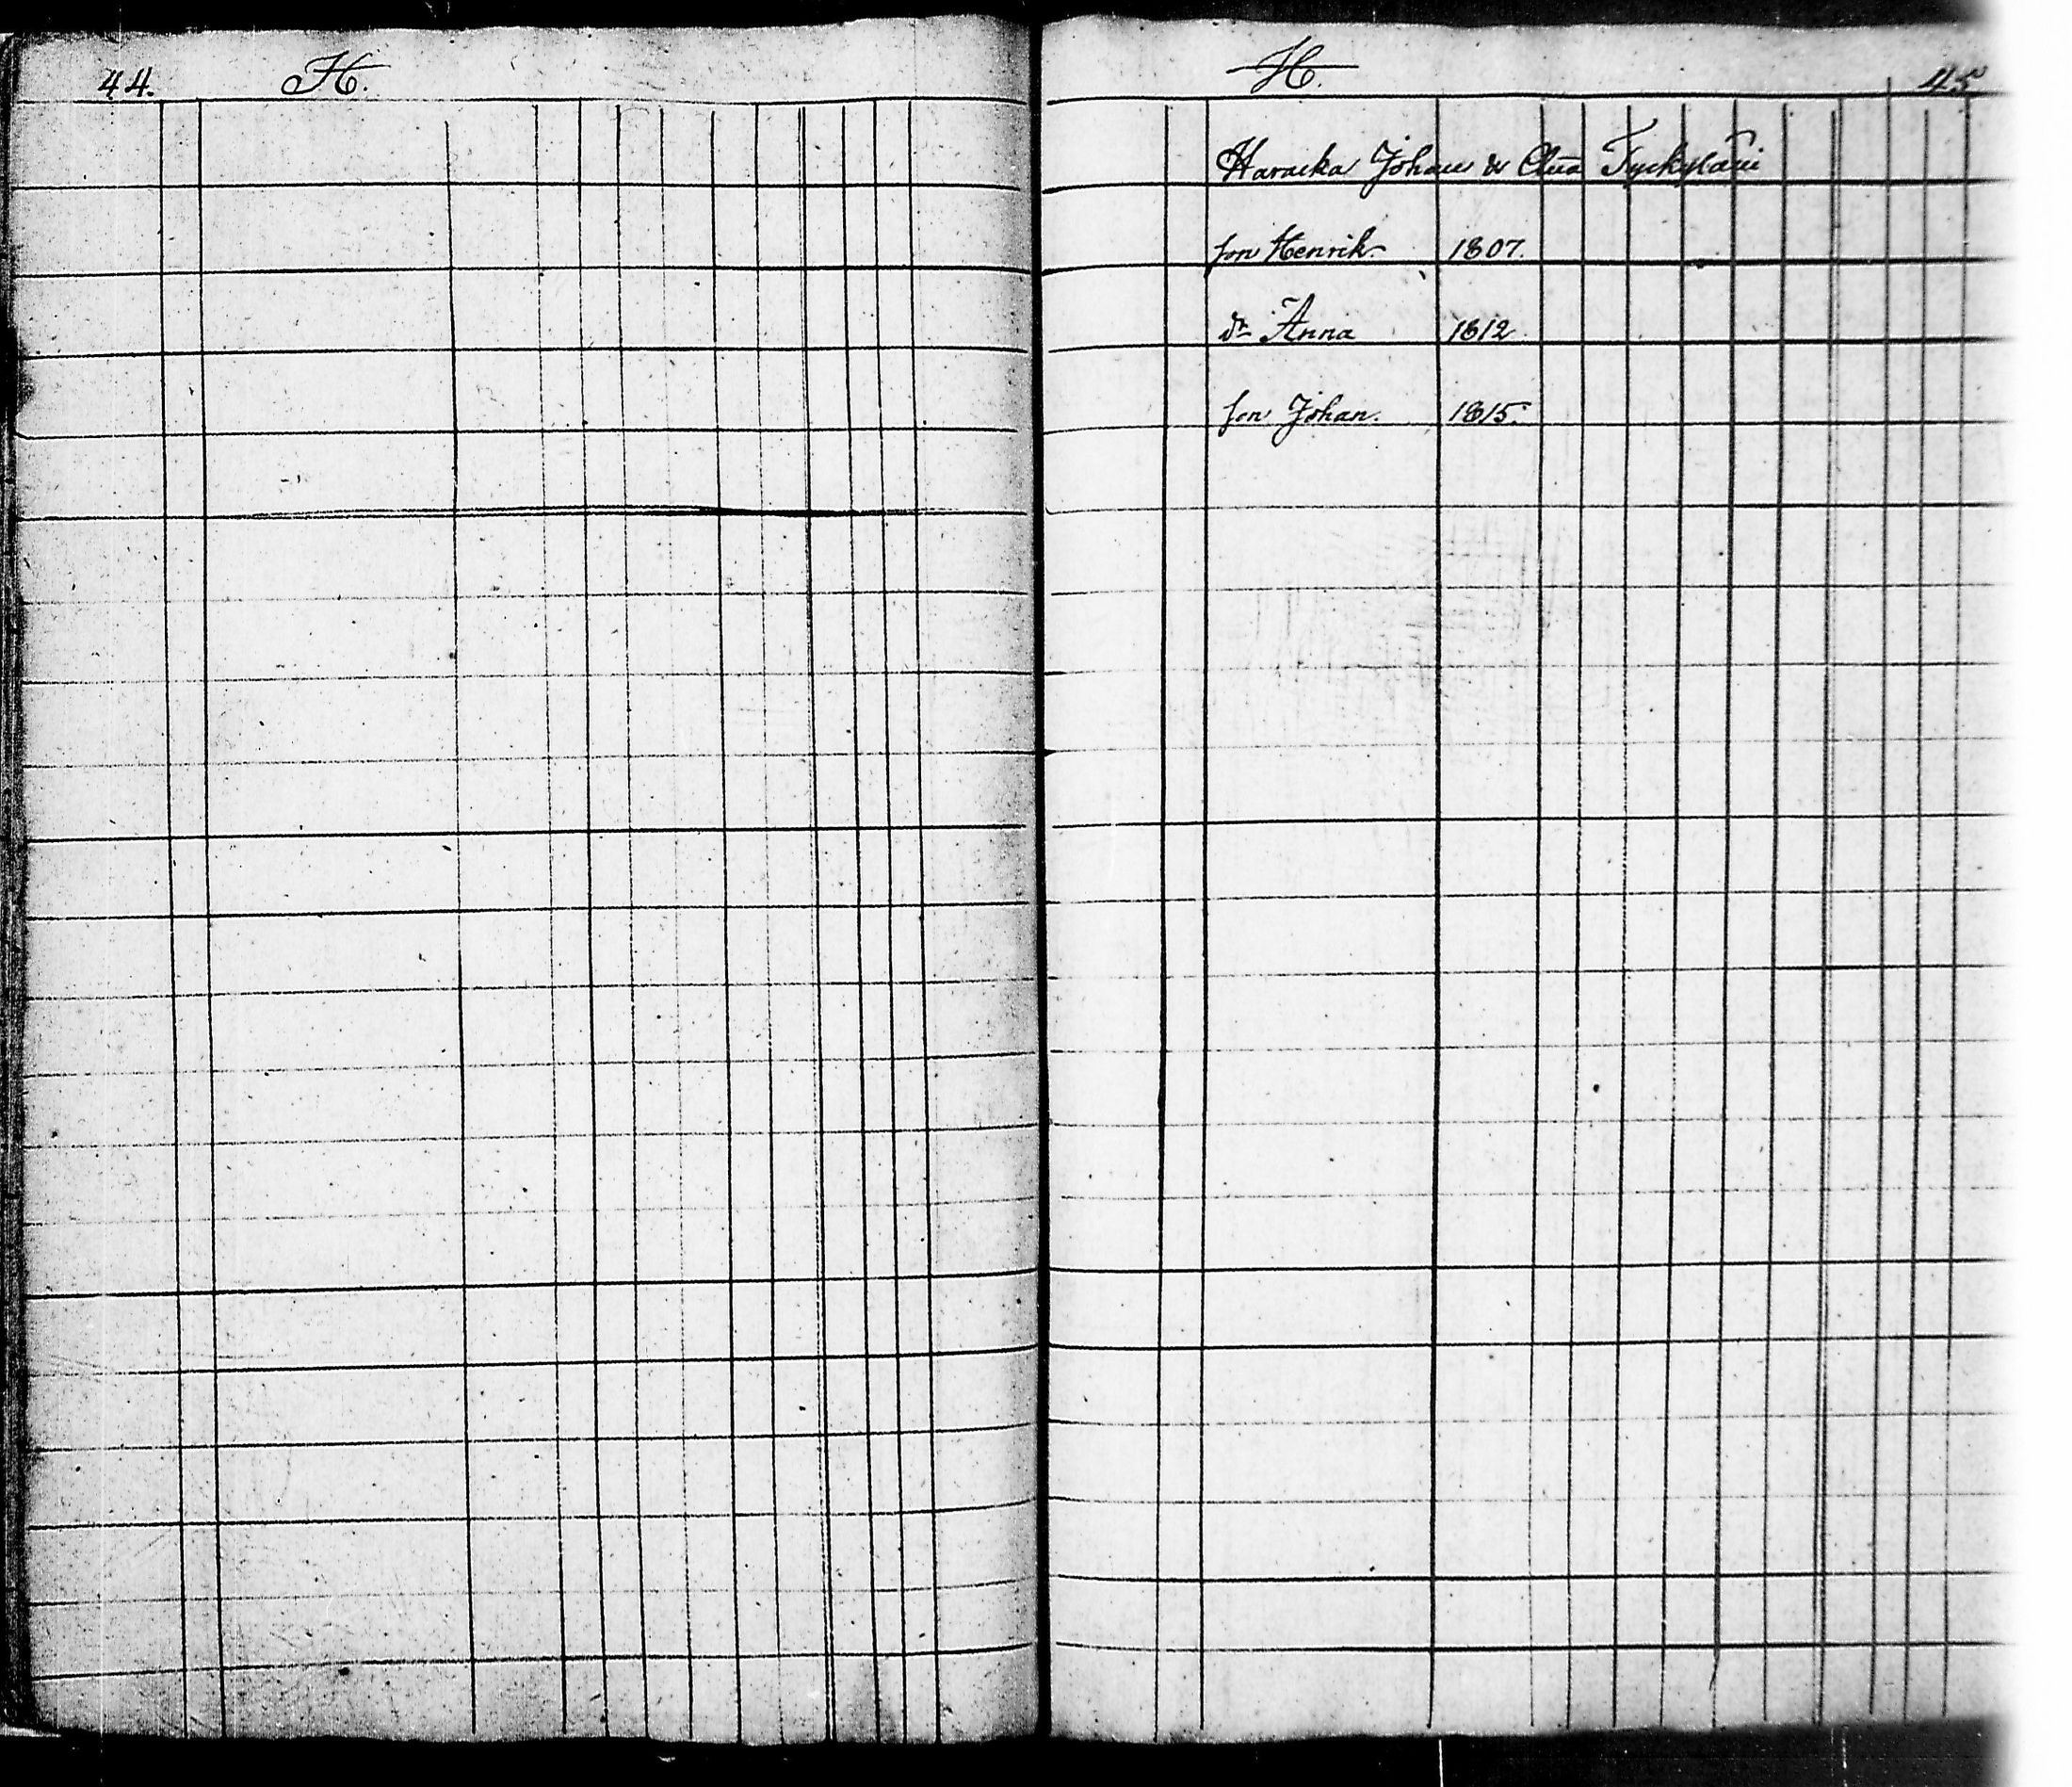 44. H.
H. 45
Haracka Johan & Clua Tyckyläni
son Henrik 1807.
dr Anna 1812
son Johan. 1815.